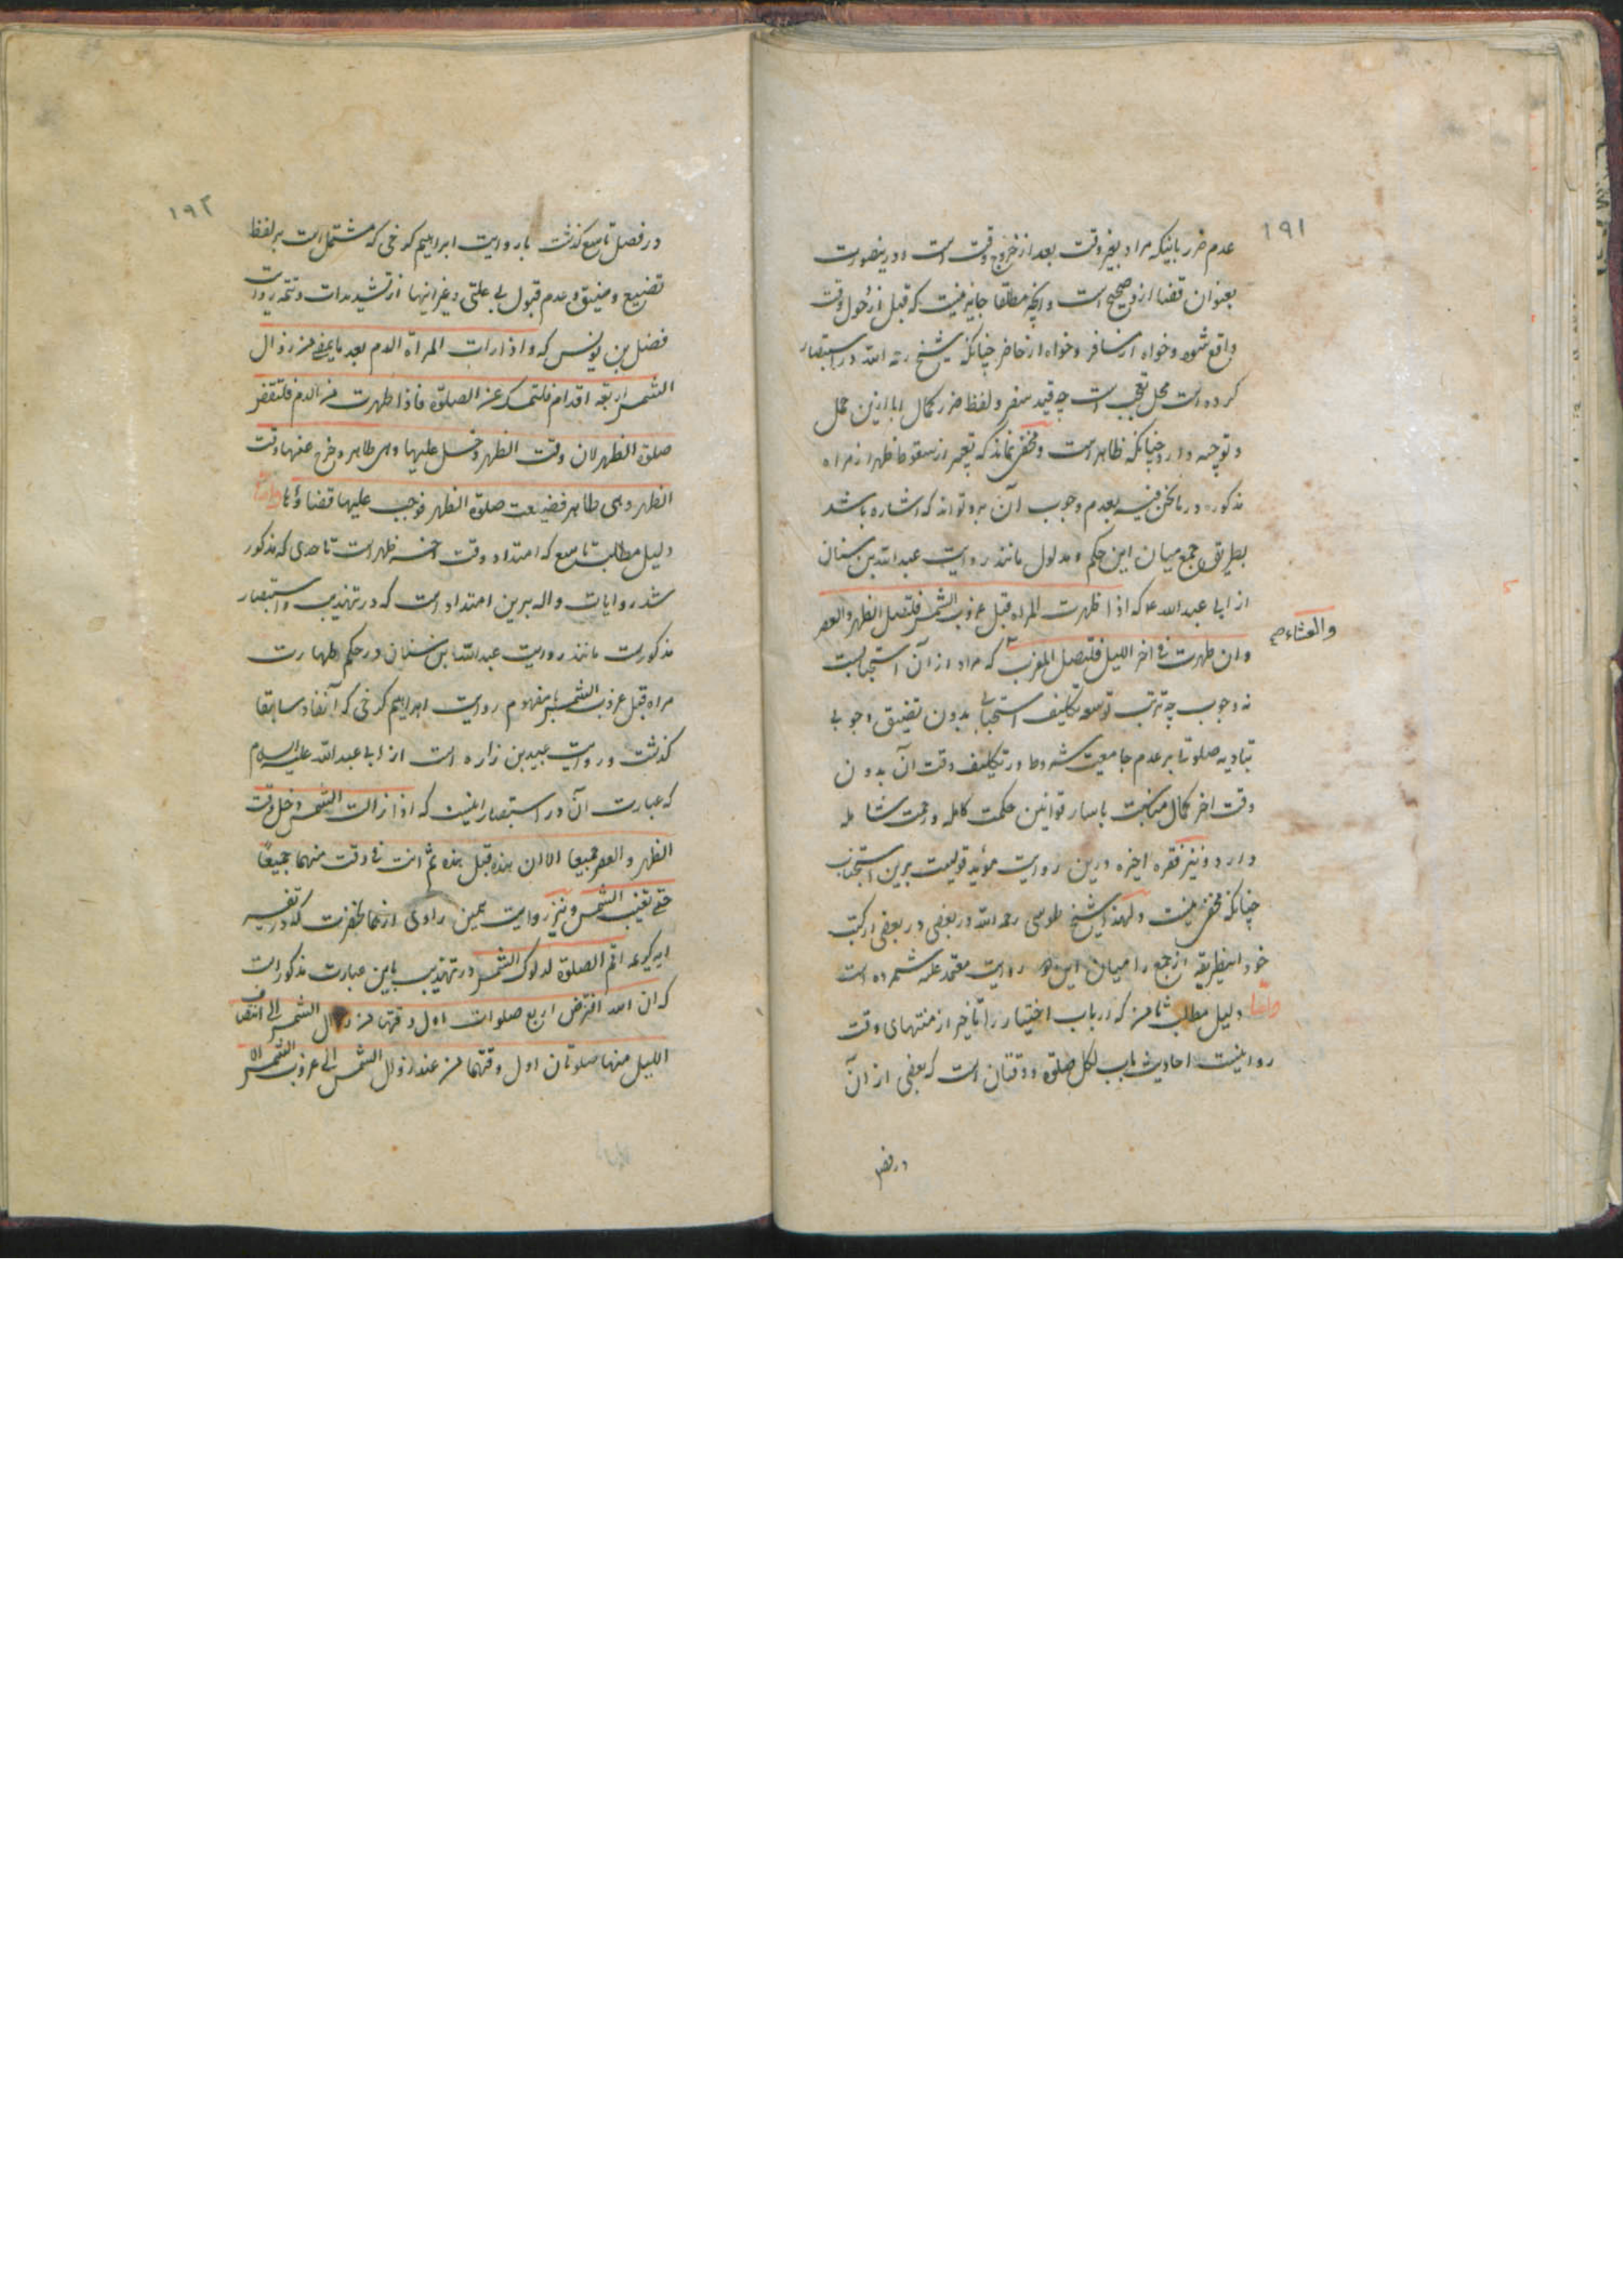 ١٩١
عدم ضرر باینکه مراد بغیر وقت بعد از خروج وقت است و درینصورت
بعنوان قضا ازو صحیح است و انچه مطلقا جایز نیست که قبل از دخول وقت
واقع شود خواه از مسافر و خواه از حاضر چنانکه شیخ رحمه الله در استبصار
کرده است محل تعجب است چه قید سفر و لفظ ضرر کمال ابا ازین حمل
و توجیه دارد چنانکه ظاهر است و مخفی نماند که تعبیر از سقوط ظهر از مراه
مذکوره در ما نحن فیه بعدم وجوب آن برو تواند که اشاره باشد
بطریق جمع میان این حکم و مدلول مانند روایت عبدالله بن سنان
از ابی عبدالله ع که اذا طهرت المراه قبل غروب الشمس فلتصل الظهر والعصر
وان طهرت فی اخر اللیل فلتصل المغرب که مراد از آن استحبابست
والعشاء صح
نه وجوب چه ترتب توسعه تکلیف استحبابی بدون تضییق وجوبی
بتادیه صلوتی بر عدم جامعیت شروط در تکلیف وقت آن بدون
وقت اخر کمال مناسبت باسایر قوانین حکمت کامله و رحمت شامله
دارد و نیز فقره اخیره درین روایت مؤید قولیست برین استحباب
چنانکه مخفی نیست و لهذا شیخ طوسی رحمه الله در بعضی در بعضی از کتب
خود اینطریقه از جمع را میان این دو روایت معتمد علیه شمرده است
دلیل مطلب ثامن که ارباب اختیار را تاخیر از منتهای وقت
روا نیست احادیث باب لکل صلوة وقتان است که بعضی از آن
در فصل
١٩٢
در فصل تاسع گذشت با روایت ابراهیم کرخی که مشتمل است بر لفظ
تضییع و ضیق و عدم قبول بی علتی و غیر اینها از تشدیدات و تتمه روایت
فضل بن یونس که و اذا رات المرأة الدم بعد ما یمضی من زوال
الشمس اربعة اقدام فلتمسک عن الصلوة فاذا طهرت من الدم فلتقض
صلوة الظهر لان وقت الظهر دخل علیها وهی طاهر وخرج عنها وقت
الظهر وهی طاهر فضیعت صلوة الظهر فوجب علیها قضاؤها
دلیل مطلب تاسع که امتداد وقت اخر ظهر است تا حدی که مذکور
شد روایات داله برین امتداد است که در تهذیب و استبصار
مذکورست مانند روایت عبدالله ابن سنان در حکم طهارت
مراه قبل غروب الشمس مفهوم روایت ابراهیم کرخی که آنفا و سابقا
گذشت و روایت عبید بن زراره است از ابی عبدالله علیه السلام
که عبارت آن در استبصار اینست که اذا زالت الشمس دخل وقت
الظهر والعصر جمیعا الا ان هذه قبل هذه ثم انت فی وقت منهما جمیعًا
حتی تغیب الشمس و نیز روایت همین راوی از همانحضرت که در تفسیر
ایه کریمه اقم الصلوة لدلوک الشمس در تهذیب باین عبارت مذکور است
که ان الله افترض اربع صلوات اول وقتها من زوال الشمس الی انتصاف
اللیل منها صلوتان اول وقتهما من عند زوال الشمس الی غروب الشمس الا